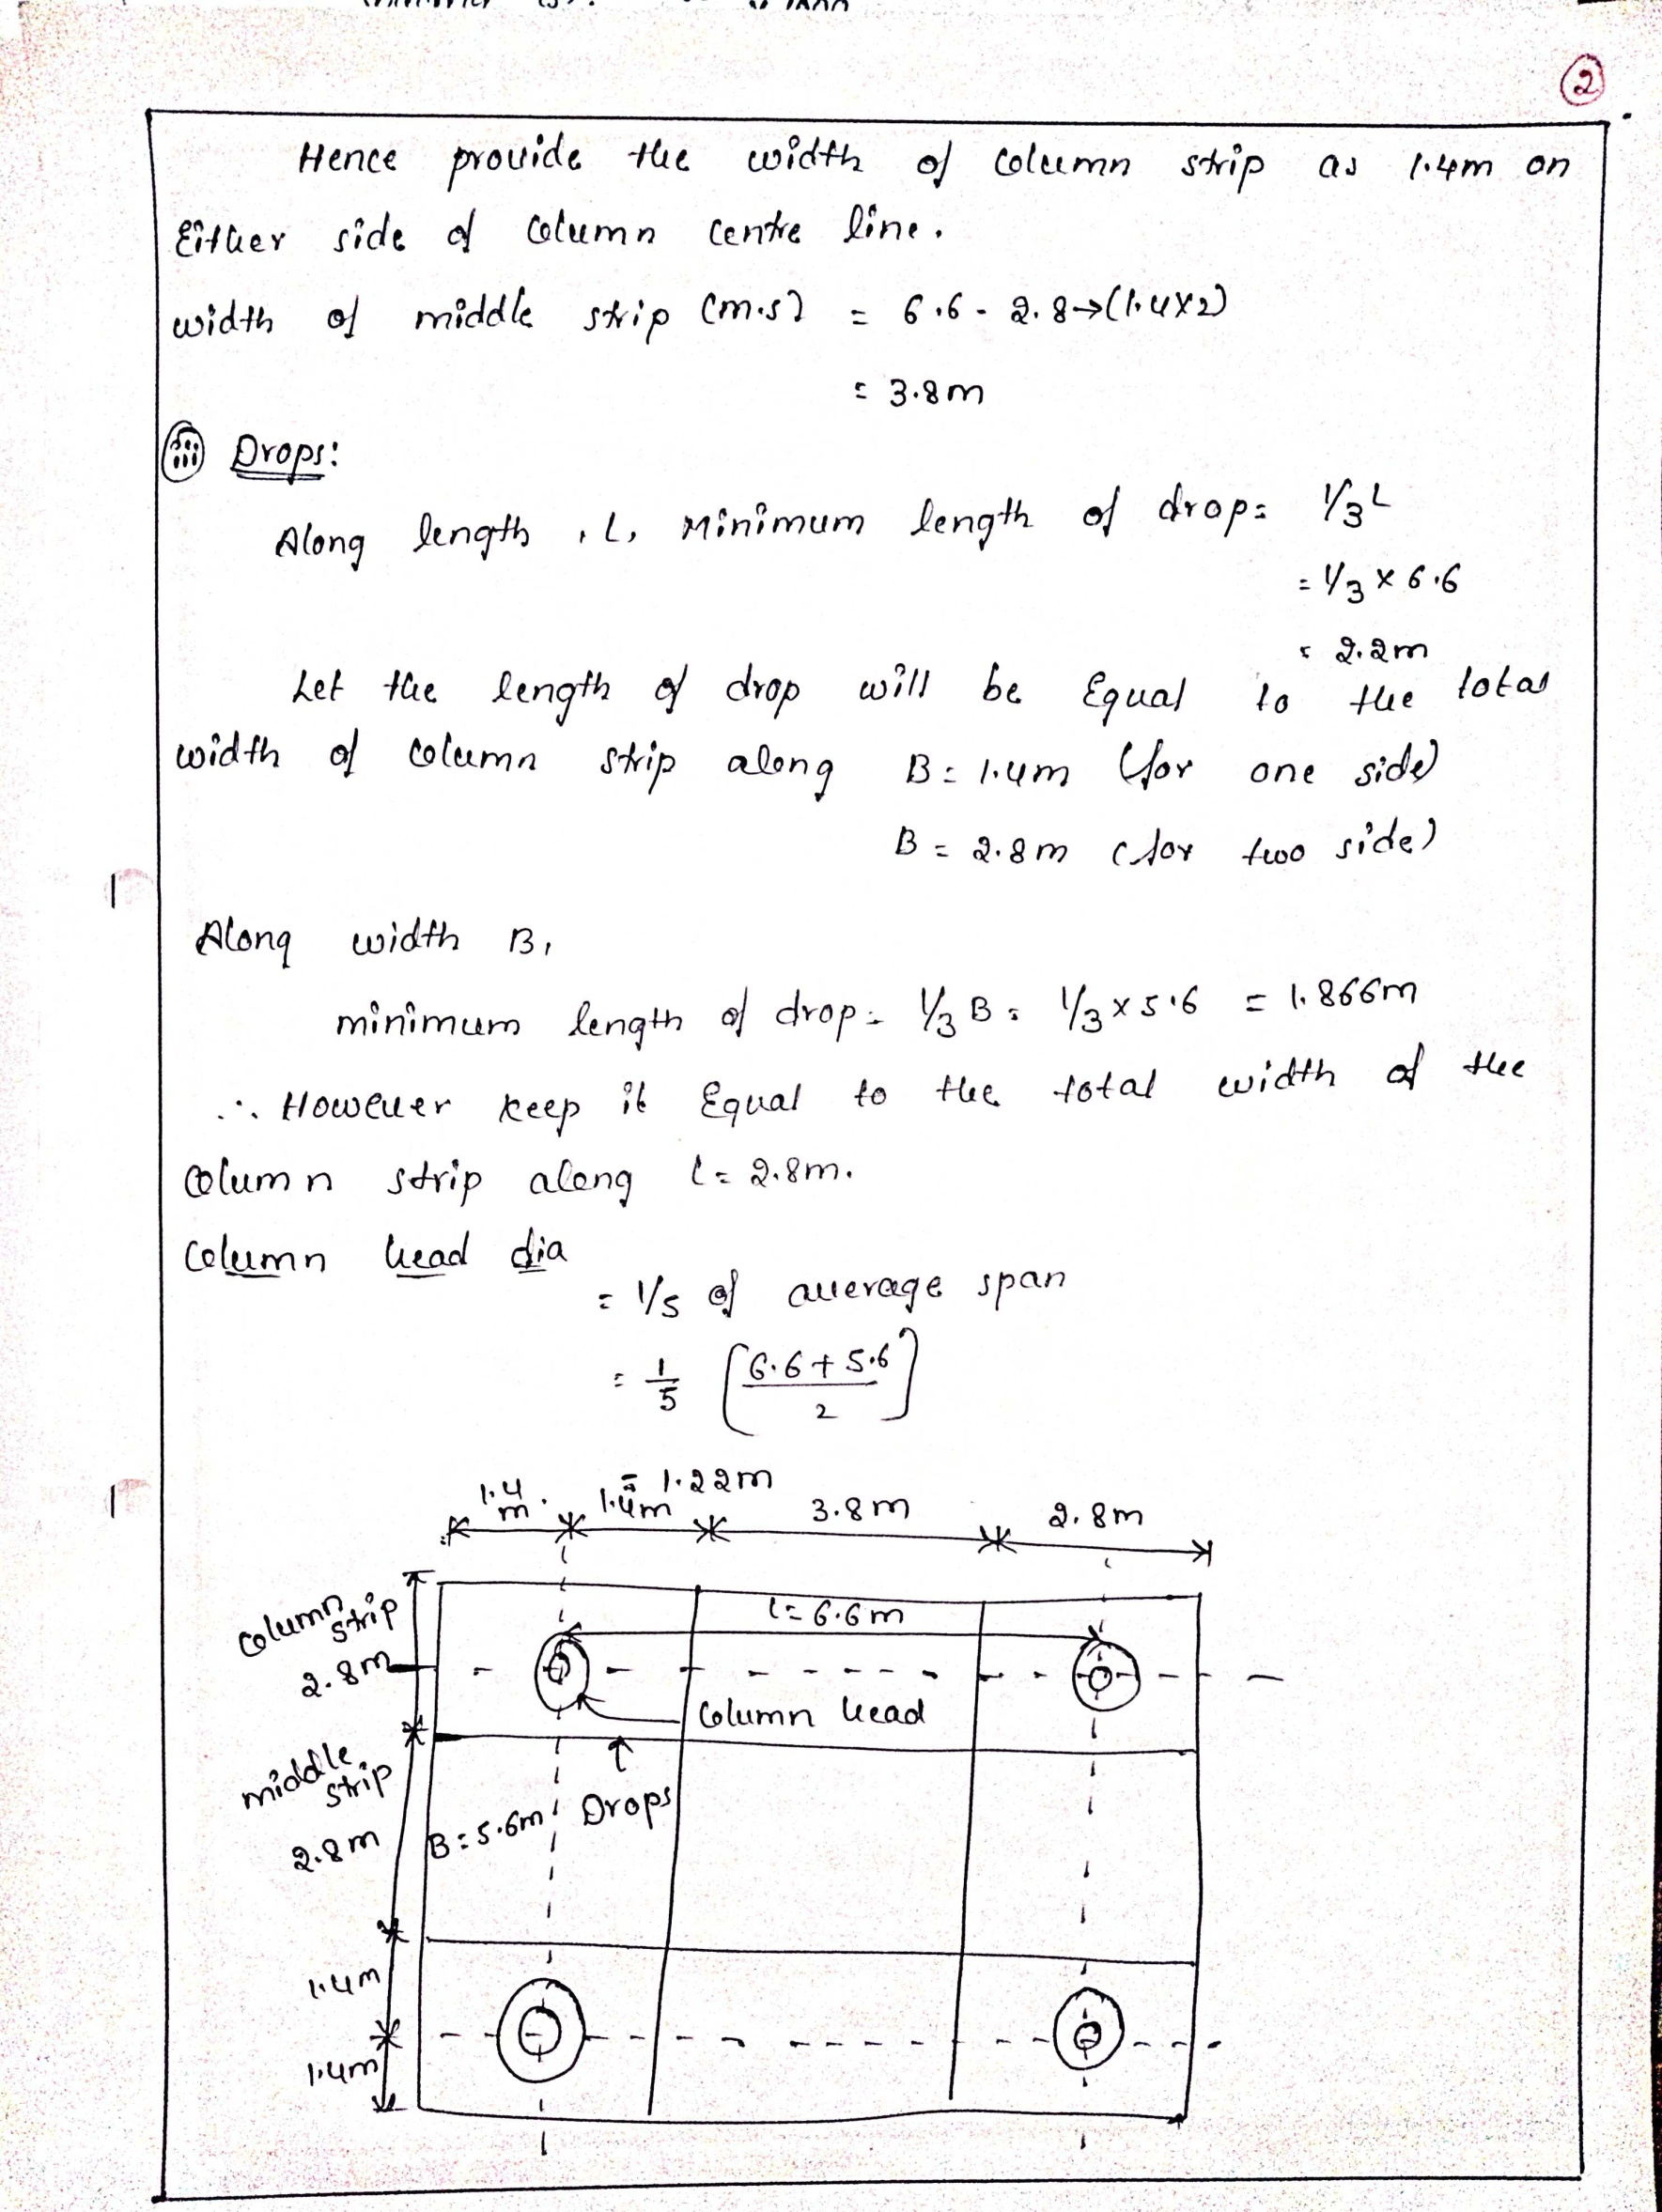 2
Hence provide the width of column strip as 1.4m on
Either side of column centre line.
width of middle strip (m.s) = 6.6 - 2.8→(1.4x2)
= 3.8m
iii Drops:
Along length, L, Minimum length of drop = 1/3 L
= 1/3 x 6.6
= 2.2m
Let the length of drop will be Equal to the total
width of column strip along B = 1.4m (for one side)
B = 2.8m (for two side)
Along width B,
minimum length of drop = 1/3 B = 1/3 x 5.6 = 1.866m
∴ However keep it Equal to the total width of the
column strip along l = 2.8m.
Column head dia
= 1/5 of average span
= 1/5 [6.6 + 5.6 / 2]
= 1.22m
1.4 m 1.4m 3.8m 2.8m
column strip
2.8m
l = 6.6m
Column head
middle strip
2.8m
B = 5.6m
Drops
1.4m
1.4m